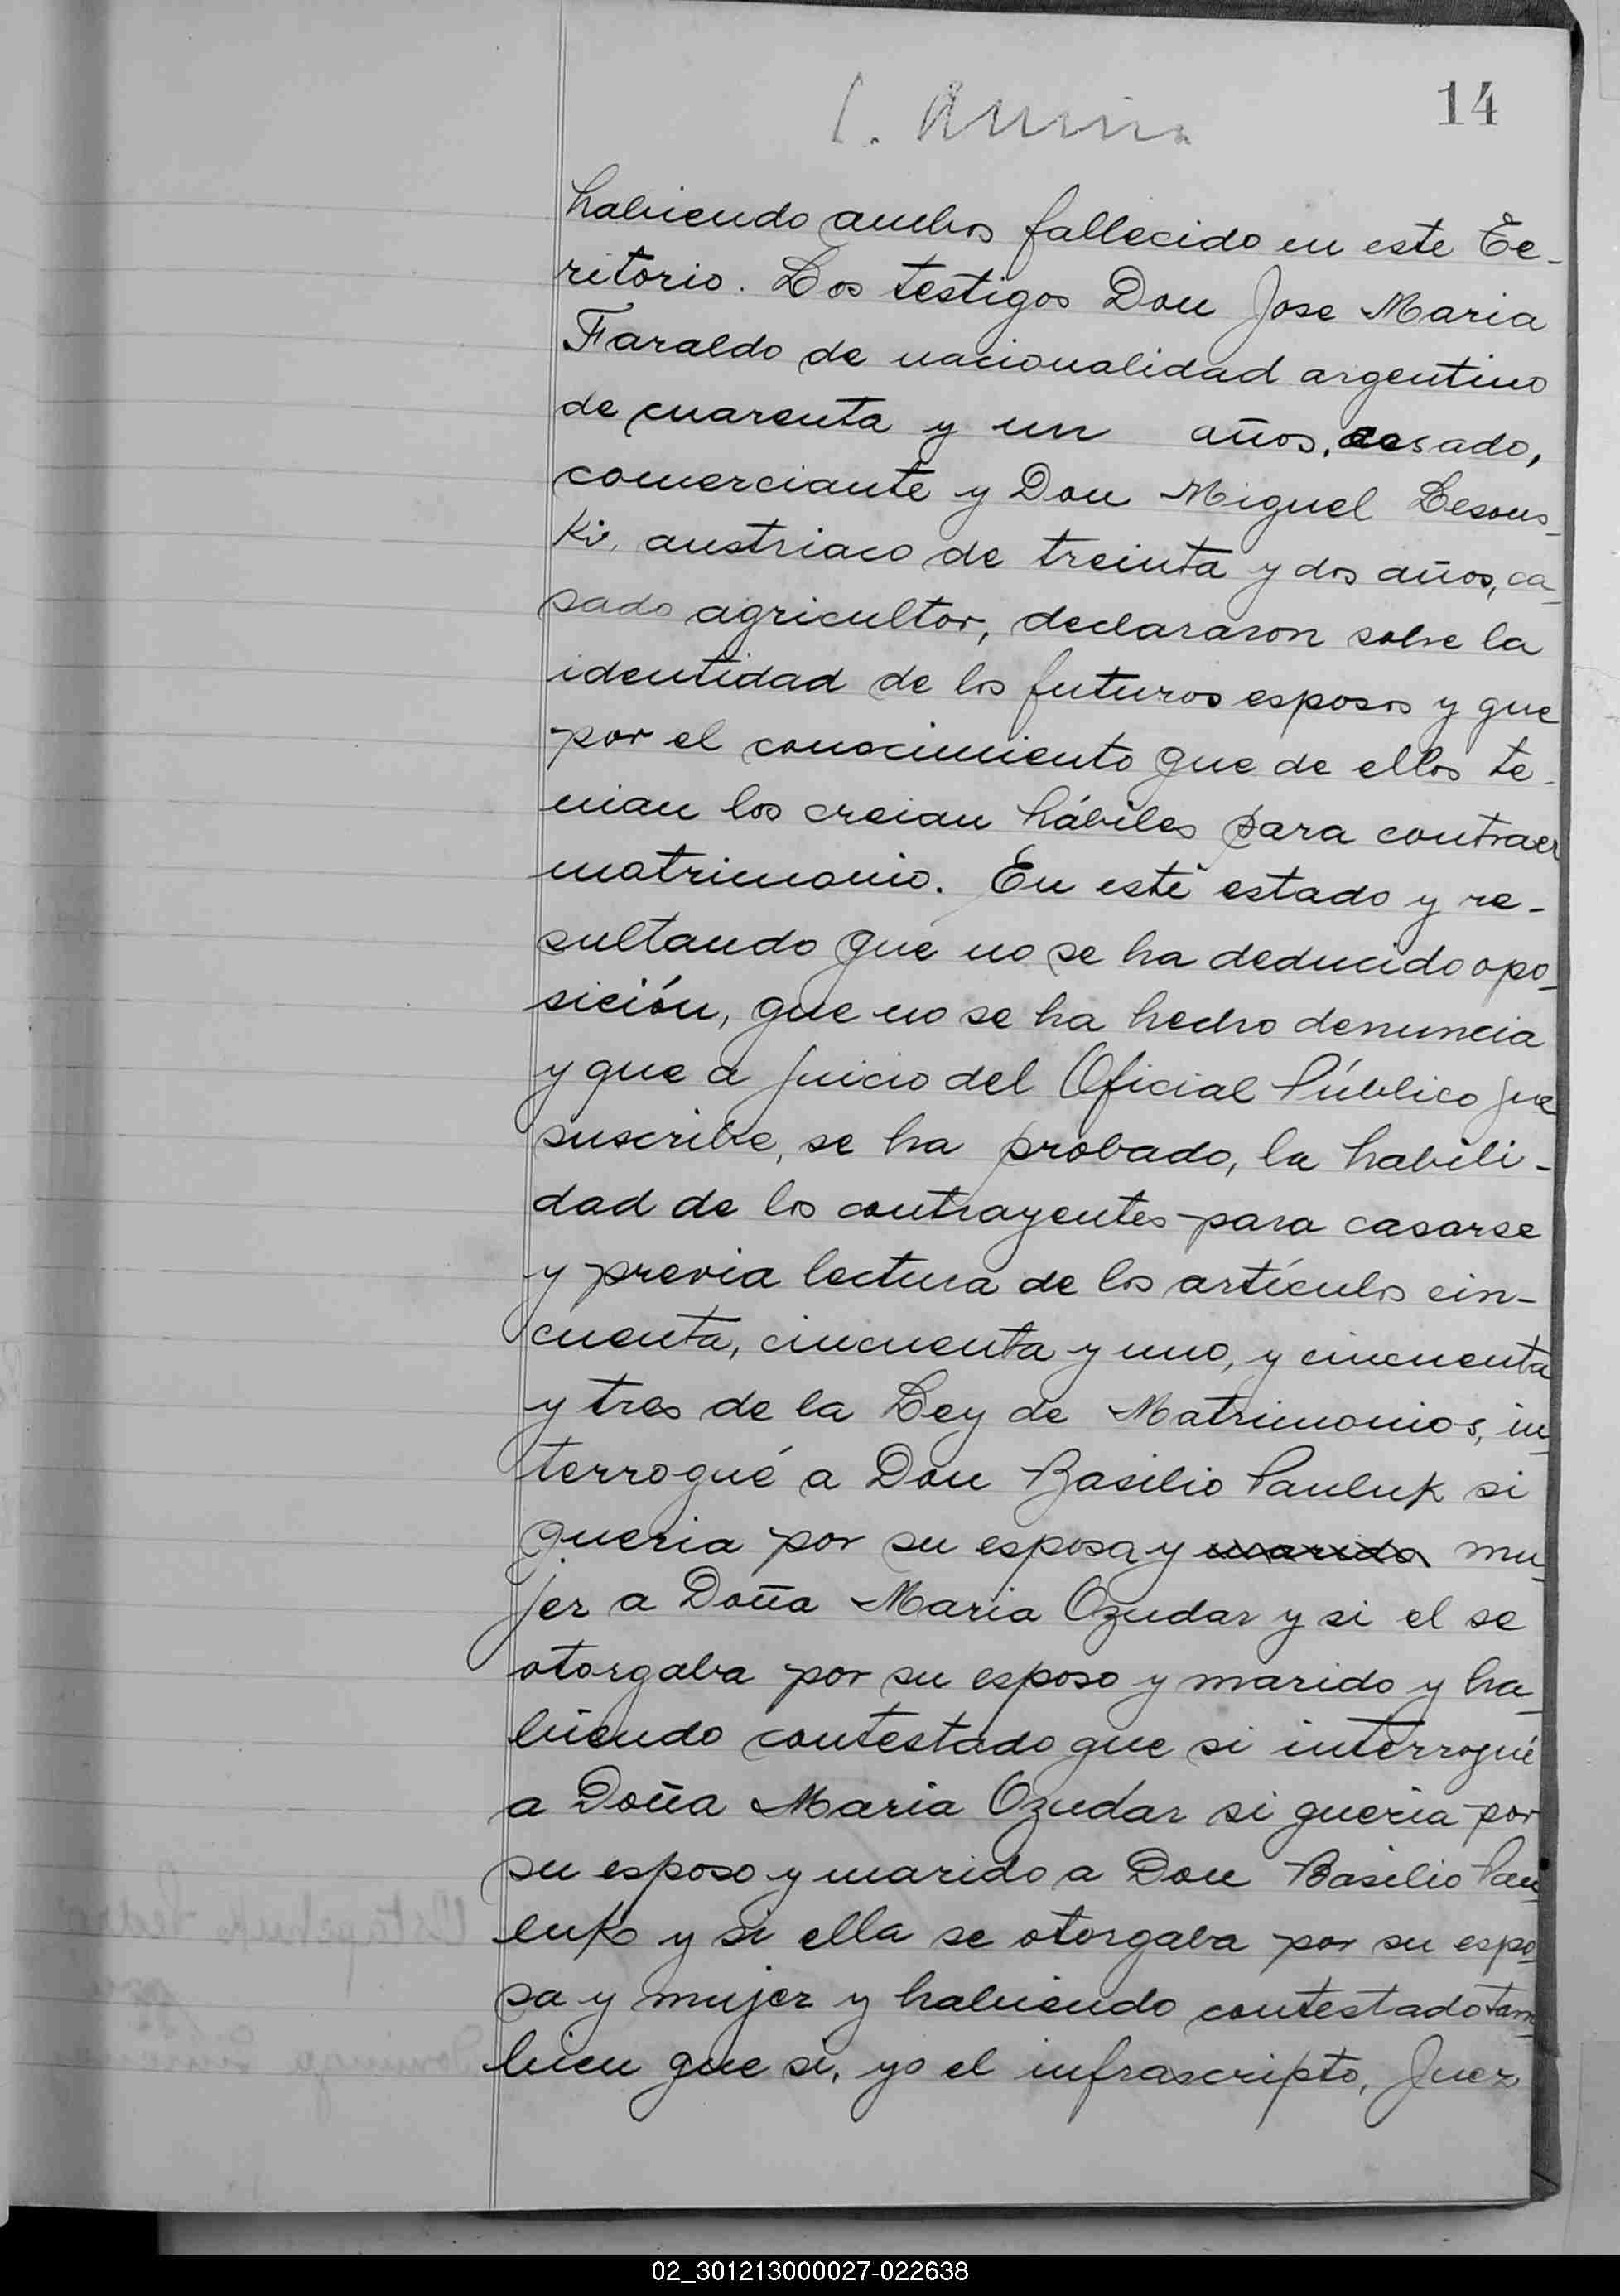 14
habiendo ambos fallecido en este Te-
ritorio. Los testigos Don Jose Maria
Faraldo de nacionalidad argentino
de cuarenta y un años, casado,
comerciante y Don Miguel Lesous-
ki, austriaco de treinta y dos años, ca-
sado agricultor, declararon sobre la
identidad de los futuros esposos y que
por el conocimiento que de ellos te-
nian los creian hábiles para contraer
matrimonio. En este estado y re-
sultando que no se ha deducido opo-
sición, que no se ha hecho denuncia
y que a juicio del Oficial Público que
suscribe, se ha probado, la habili-
dad de los contrayentes para casarse
y previa lectura de los artículos cin-
cuenta, cincuenta y uno, y cincuenta
y tres de la Ley de Matrimonios, in-
terrogué a Don Basilio Pauluk si
queria por su esposa y marido mu-
jer a Doña Maria Ozudar y si el se
otorgaba por su esposo y marido y ha-
biendo contestado que si interrogué
a Doña Maria Ozudar si queria por
su esposo y marido a Don Basilio Pau-
luk y si ella se otorgaba por su espo-
sa y mujer y habiendo contestado tam-
bien que si, yo el infrascripto, Juez
02_301213000027-022638